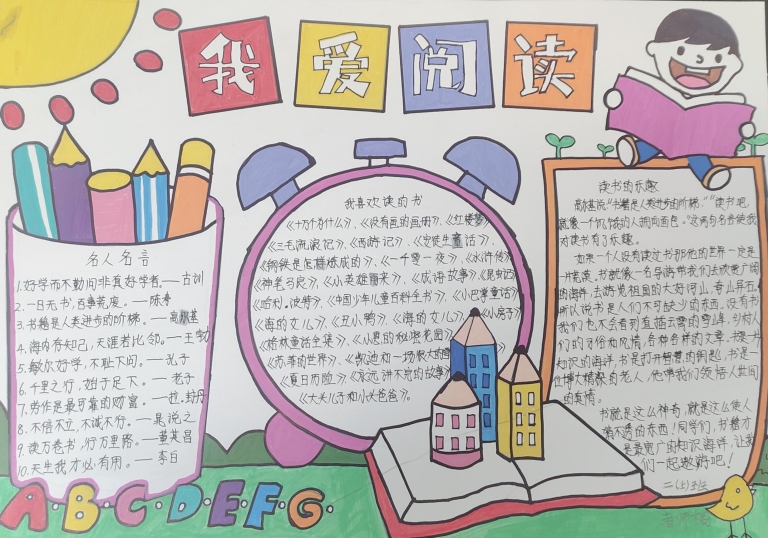 我爱阅读
名人名言
1.好学而不勤问非真好学者。——古训
2.一日无书,百事荒废。——陈寿
3.书籍是人类进步的阶梯。——高尔基
4.海内存知己,天涯若比邻。——王勃
5.敏尔好学,不耻下问。——孔子
6.千里之行,始于足下。——老子
7.劳作是最可靠的财富。——拉·封丹
8.不倍不立,不诚不行。——晁说之
9.读万卷书,行万里路。——董其昌
10.天生我才必有用。——李白
我喜欢读的书
《十万个为什么》、《没有画的画册》、《红楼梦》
《三毛流浪记》、《西游记》、《安徒生童话》、
《钢铁是怎样炼成的》、《一千零一夜》、《水浒传》
《神笔马良》、《小英雄雨来》、《成语故事》、《昆虫记》
《哈利·波特》、《中国少年儿童百科全书》、《小巴掌童话》
《海的女儿》、《丑小鸭》、《海的女儿》、《小房子》
《格林童话全集》、《小思的秘密花园》
《苏菲的世界》、《凯迪和一场很大的雪》
《夏日历险》、《永远讲不完的故事》
《大头儿子和小头爸爸》。
读书的乐趣
高尔基说"书籍是人类进步的阶梯。""读书吧
就像一个饥饿的人扑向面包。"这两句名言使我
对读书有了乐趣。
如果一个人没有读过书那他的世界一定是
一片荒漠。书就像一名导游带我们去欣赏广阔
的海洋,去游览祖国的大好河山、奇山异石
所以说书是人们不可缺少的东西。没有书
我们也不会看到直插云霄的雪山峰,
们的习俗和风情,各种各样的文章。书是一
知识的海洋,书是打开智慧的钥匙,书是一
位博大精深的老人,他带我们领悟人世间
的真情。
书就是这么神奇,就是这么使人
猜不透的东西!同学们,书籍才
是最宽广的知识海洋,让我
们一起遨游吧!
二(上)
A·B·C·D·E·F·G·